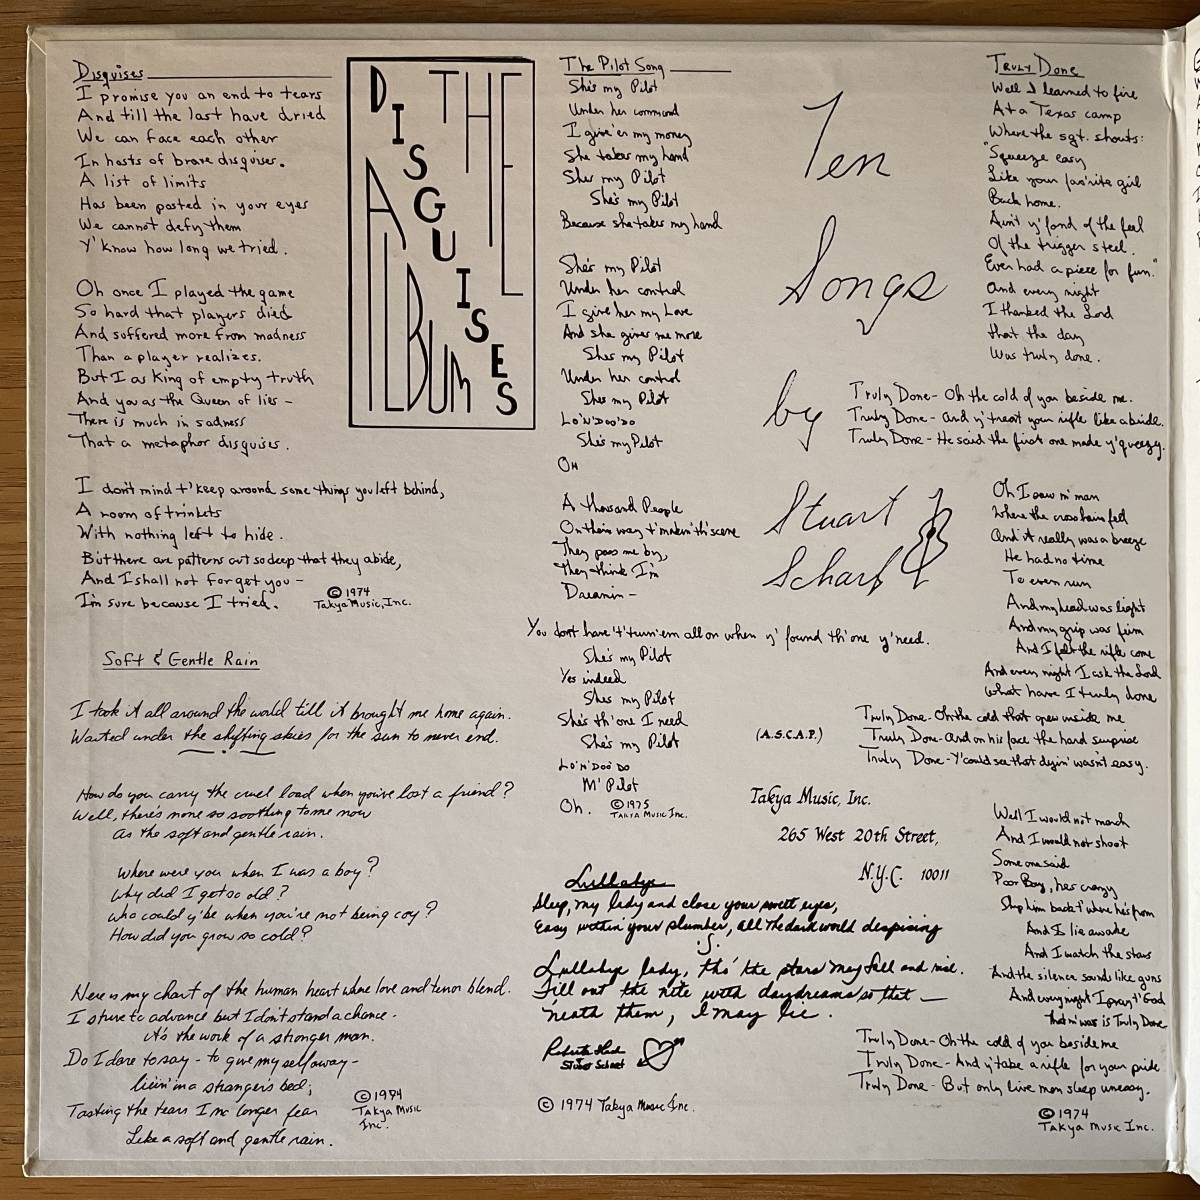 Disguises
I promise you an end to tears
And till the last have dried
We can face each other
In hosts of brave disguises.
A list of limits
Has been posted in your eyes
We cannot defy them
Y'know how long we tried.
Oh once I played the game
So hard that players died
And suffered more from madness
Than a player realizes.
But I as King of empty truth
And you as the Queen of lies –
There is much in sadness
That a metaphor disguises.
I don't mind t'keep around some things you left behind,
A room of trinkets
With nothing left to hide.
But there are patterns cut so deep that they abide,
And I shall not forget you –
I'm sure because I tried.
© 1974
Takya Music, Inc.
Soft & Gentle Rain
I took it all around the world till it brought me home again.
Waited under the shifting skies for the sun to never end.
How do you carry the cruel load when you've lost a friend?
Well, there's none so soothing to me now
as the soft and gentle rain.
Where were you when I was a boy?
Why did I get so old?
Who could y'be when you're not being coy?
How did you grow so cold?
Here is my chart of the human heart where love and terror blend.
I strive to advance but I don't stand a chance.
It's the work of a stronger man.
Do I dare to say – to give myself away –
livin' in a stranger's bed;
Tasting the tears I no longer fear
Like a soft and gentle rain.
© 1974
Takya Music
Inc.
THE
DISGUISES
ALBUM
The Pilot Song
She's my Pilot
Under her command
I give 'er my money
She takes my hand
She's my Pilot
She's my Pilot
Because she takes my hand
She's my Pilot
Under her control
I give her my Love
And she gives me more
She's my Pilot
Under her control
She's my Pilot
Lo'N'Doo'Do
She's my Pilot
Oh
A thousand People
On their way t'makin' th'scene
They pass me by,
They think I'm
Dreamin –
You don't have 't'turn 'em all on when y' found th'one y'need.
She's my Pilot
Yes indeed
She's my Pilot
She's th'one I need
She's my Pilot
Lo'N'Doo'Do
M' Pilot
Oh.
© 1975
Takya Music Inc.
Lullabye
Sleep, my lady and close your sweet eyes,
Easy within your slumber, all the dark world despising
Lullabye lady, tho' the stars may fall and rise.
Fill out the nite with daydreams so that —
'neath them, I may lie.
Stuart Scharf
© 1974 Takya Music Inc.
Ten
Songs
by
Stuart
Scharf
(A.S.C.A.P.)
Takya Music, Inc.
265 West 20th Street,
N.Y.C. 10011
Truly Done
Well I learned to fire
At a Texas camp
Where the sgt. shouts:
"Squeeze easy
Like your fav'rite girl
Back home.
Ain't y'fond of the feel
Of the trigger steel.
Ever had a piece for fun."
And every night
I thanked the Lord
that the day
Was truly done.
Truly Done – Oh the cold of you beside me.
Truly Done – and y'treat your rifle like a bride.
Truly Done – He said the first one made y'queezy.
Oh I saw m'man
Where the crosshairs fell
And it really was a breeze
He had no time
To even run
And my head was light
And my grip was firm
And I felt the rifle come
And every night I ask the Lord
What have I truly done
Truly Done – Oh the cold that grew inside me
Truly Done – And on his face the hard surprise
Truly Done – Y'could see that dyin' wasn't easy.
Well I would not march
And I would not shoot
Some one said
Poor Boy, he's crazy
Ship him back t'where he's from
And I lie awake
And I watch the stars
And the silence sounds like guns
And every night I pray t'God
That m'war is Truly Done
Truly Done – Oh the cold of you beside me
Truly Done – And y'take a rifle for your pride
Truly Done – But only live men sleep uneasy.
© 1974
Takya Music Inc.